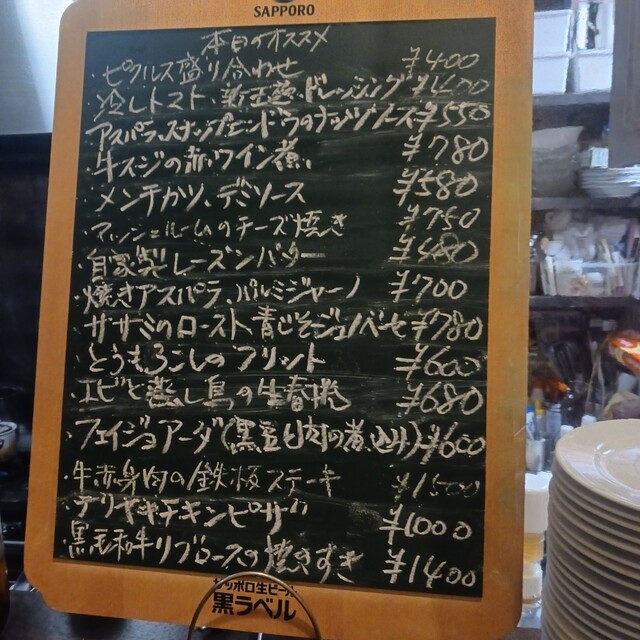 SAPPORO
本日のオススメ
・ピクルス盛り合わせ ¥400
・冷しトマト、新玉葱ドレッシング ¥400
アスパラ、スナップエンドウのナッツソース ¥550
牛スジの赤ワイン煮 ¥780
メンチカツ、デミソース ¥580
・マッシュルームのチーズ焼き ¥750
・自家製レーズンバター ¥480
・焼きアスパラ、パルミジャーノ ¥700
ササミのロースト、青じそジェノベーゼ ¥780
・とうもろこしのフリット ¥600
・エビと蒸し鳥の生春捲 ¥680
・フェイジョアーダ(黒豆と肉の煮込み) ¥600
・牛赤身肉の鉄板ステーキ ¥1500
・テリヤキチキンピザ ¥1000
黒毛和牛リブロースの焼きすき ¥1400
サッポロ生ビール
黒ラベル